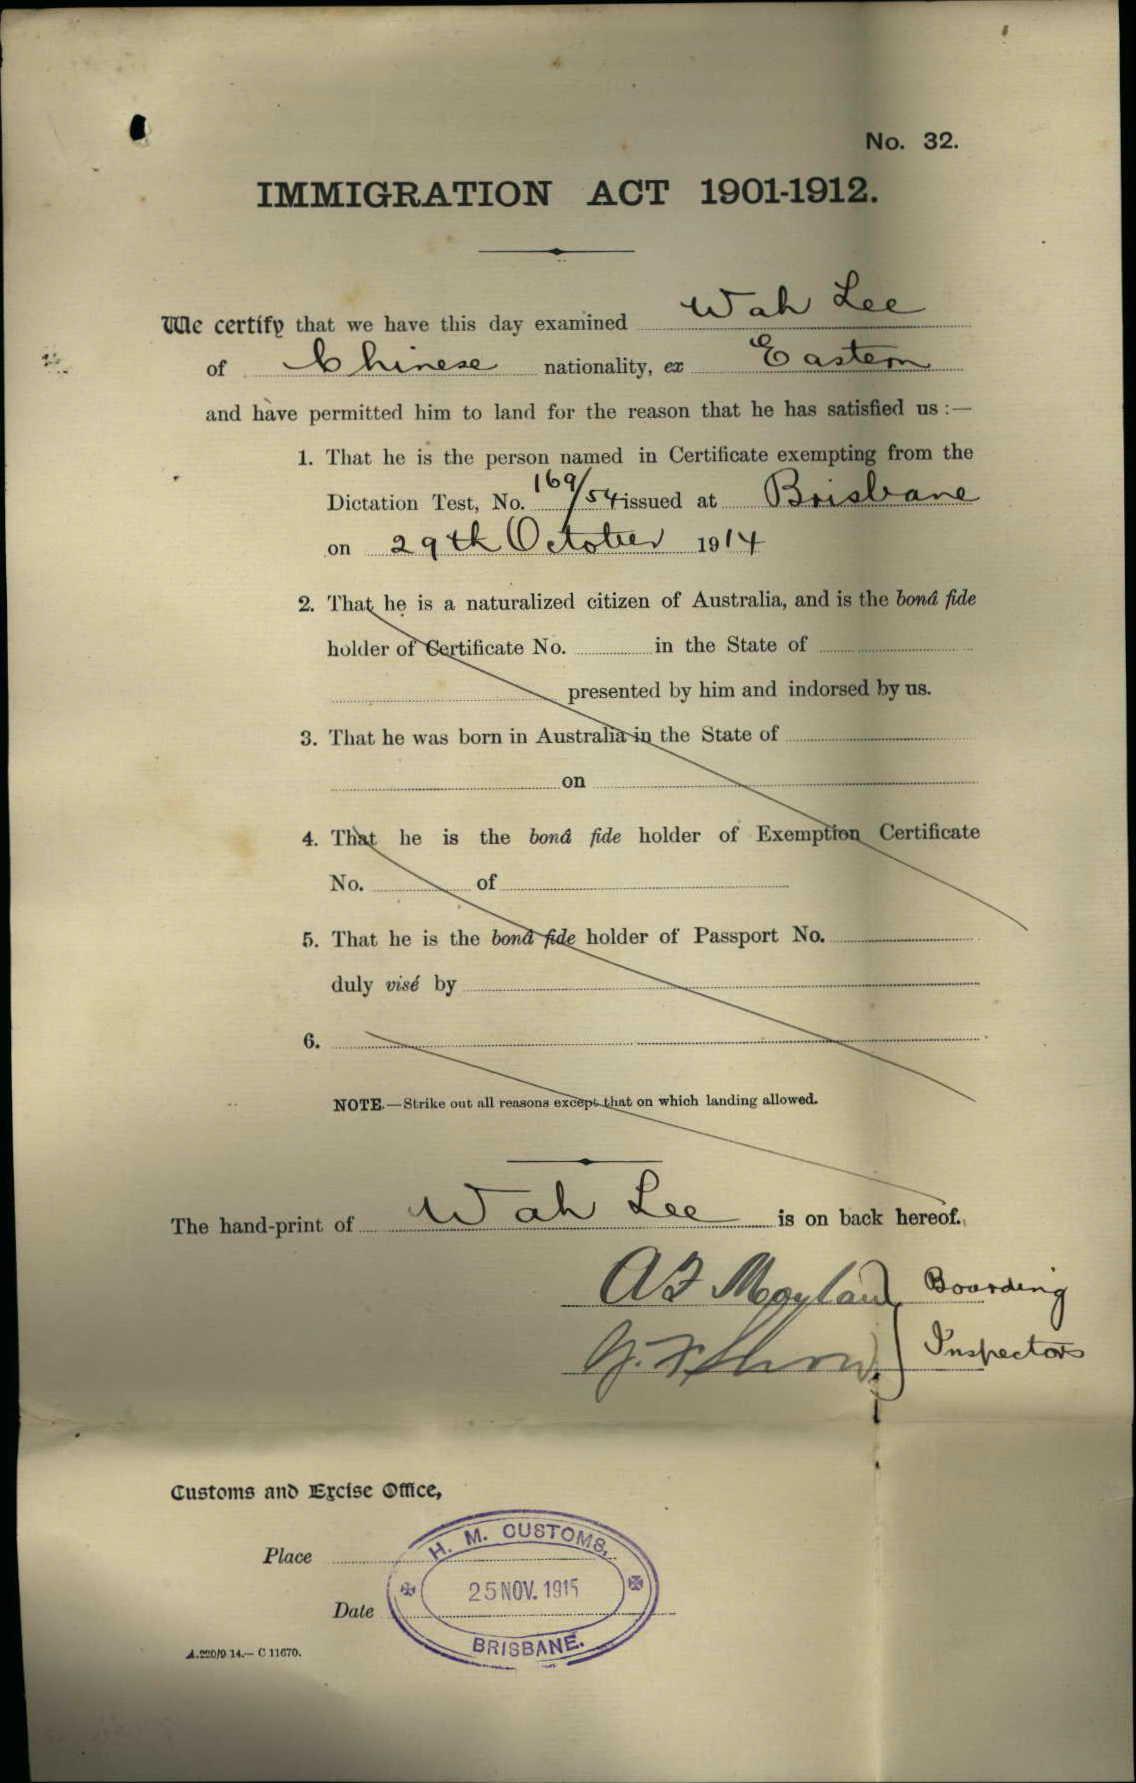 No. 32.
IMMIGRATION ACT 1901-1912.
We certify that we have this day examined Wah Lee
of Chinese nationality, ex Eastern
and have permitted him to land for the reason that he has satisfied us :—
1. That he is the person named in Certificate exempting from the
Dictation Test, No. 169/54 issued at Brisbane
on 29th October 1914
2. That he is a naturalized citizen of Australia, and is the bonâ fide
holder of Certificate No. in the State of
presented by him and indorsed by us.
3. That he was born in Australia in the State of
on
4. That he is the bonâ fide holder of Exemption Certificate
No. of
5. That he is the bonâ fide holder of Passport No.
duly visé by
6.
NOTE.—Strike out all reasons except that on which landing allowed.
The hand-print of Wah Lee is on back hereof.
Boarding
Inspectors
Customs and Excise Office,
H. M. CUSTOMS,
Place
25 NOV. 1915
Date
BRISBANE.
A.220/9.14.— C 11670.